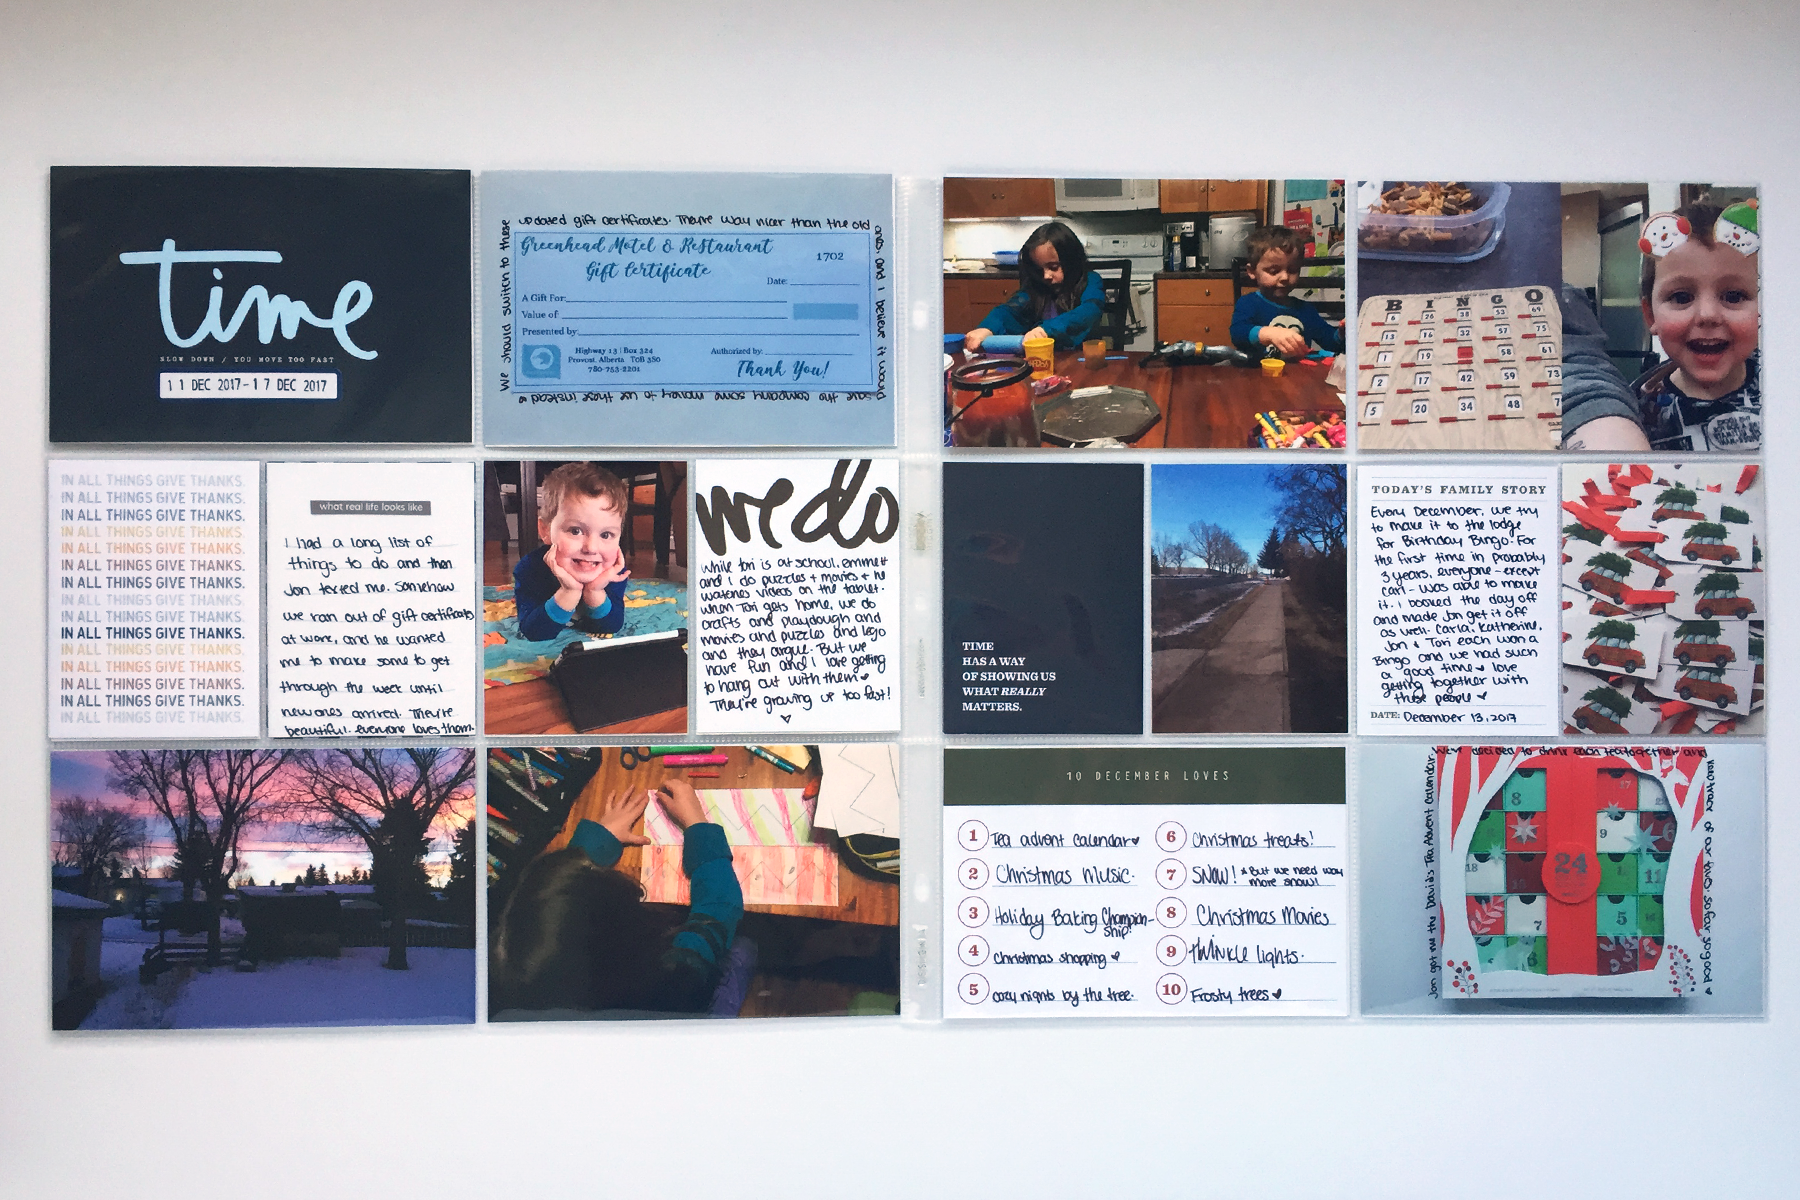 time
SLOW DOWN / YOU MOVE TOO FAST
11 DEC 2017-17 DEC 2017
We should switch to these
updated gift certificates. They're way nicer than the old
ones, and I believe it would
save the company some money to use these instead
Greenhead Motel & Restaurant
Gift Certificate
1702
Date:
A Gift For:
Value of:
Presented by:
Highway 13 | Box 324
Provost, Alberta T0B 3S0
780-753-2201
Authorized by:
Thank You!
BINGO
6 26 38 53 69
13 16 32 57 75
1 19 58 61
2 17 42 59 73
5 20 34 48
IN ALL THINGS GIVE THANKS.
IN ALL THINGS GIVE THANKS.
IN ALL THINGS GIVE THANKS.
IN ALL THINGS GIVE THANKS.
IN ALL THINGS GIVE THANKS.
IN ALL THINGS GIVE THANKS.
IN ALL THINGS GIVE THANKS.
IN ALL THINGS GIVE THANKS.
IN ALL THINGS GIVE THANKS.
IN ALL THINGS GIVE THANKS.
IN ALL THINGS GIVE THANKS.
IN ALL THINGS GIVE THANKS.
IN ALL THINGS GIVE THANKS.
IN ALL THINGS GIVE THANKS.
IN ALL THINGS GIVE THANKS.
what real life looks like
I had a long list of
things to do and then
Jon texted me. Somehow
we ran out of gift certificates
at work, and he wanted
me to make some to get
through the week until
new ones arrived. They're
beautiful. everyone loves them.
we do
While Tori is at school, emmett
and I do puzzles + movies + he
watches videos on the tablet.
When Tori gets home, we do
crafts and playdough and
movies and puzzles and lego
and they argue. But we
have fun and I love getting
to hang out with them
They're growing up too fast!
TIME
HAS A WAY
OF SHOWING US
WHAT REALLY
MATTERS.
TODAY'S FAMILY STORY
Every December, we try
to make it to the lodge
for Birthday Bingo. For
the first time in probably
3 years, everyone - except
Carl - was able to make
it. I booked the day off
and made Jon get it off
as well. Carla, Katherine,
Jon + Tori each won a
Bingo and we had such
a good time love
getting together with
these people
DATE: December 13, 2017
10 DECEMBER LOVES
1 Tea advent calendar
2 Christmas Music.
3 Holiday Baking Champion-
ship!
4 Christmas shopping
5 cozy nights by the tree.
6 Christmas treats!
7 SNOW! *But we need way
more snow!
8 Christmas Movies
9 twinkle lights.
10 Frosty trees
Jon got me the Davids Tea Advent Calendar
We've decided to drink each tea together and
keep track of our favs. So far so good
8
17
9
24
18
11
7
5
6